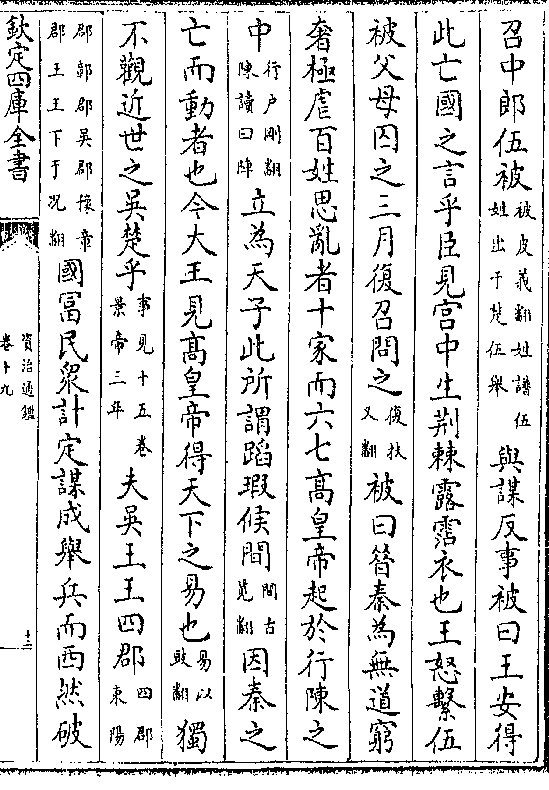 召中郎伍被被皮義翻姓譜伍姓出于楚伍舉與謀反事被曰王安得
此亡國之言乎臣見宫中生荆棘露霑衣也王怒繫伍
被父母囚之三月復召問之復扶又翻被曰昔秦為無道窮
奢極虐百姓思亂者十家而六七髙皇帝起於行陳之
中行户剛翻陳讀曰陣立為天子此所謂蹈瑕候間間古莧翻因秦之
亡而動者也今大王見髙皇帝得天下之易也易以豉翻獨
不觀近世之吳楚乎事見十五卷景帝三年夫吳王王四郡四郡東陽
郡鄣郡吳郡豫章郡王王下于况翻國富民衆計定謀成舉兵而西然破
欽定四庫全書
資治通鑑
卷十九